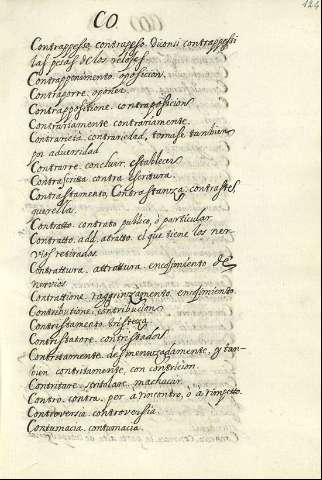 124
CO
Contrappeso, contrapeso. diconsi contrappesi
las pesas de los reloses
Contrapponimento. oposicion.
Contraporre. oponer.
Contrappositione. contraposicion
Contrariamente contrariamente.
Contrarietà contrariedad, tomase tambien
por adversidad
Contrarre. concluir, establecer
Contrascrita contra escritura.
Contrastamento, Contrastanza, contraste
querella.
Contratto. contrato publico, ò particular.
Contratto. add. atratto. el que tiene los ner-
vios retirados.
Contrattura. attrattura. encogimiento de
nervios
Contrattione. raggrinzamento. encogimiento.
Contributione. contribucion
Contristamento. tristeza.
Contristatore. contristador
Contritamente. desmenuzadamente, y tan-
bien contritamente, con contricion.
Contritare. tritular. machucar.
Contro. contra. per a rincontro, ò a rimpetto.
Controversia controversia.
Contumacia. contumacia.